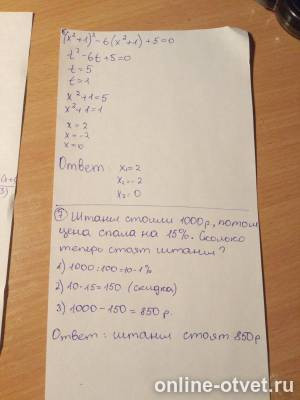 (x²+1)²-6(x²+1)+5=0
t²-6t+5=0
t=5
t=1
x²+1=5
x²+1=1
x=2
x=-2
x=0
Ответ: x₁=2
x₂=-2
x₃=0
⑦ Штаны стоили 1000р, потом
цена спала на 15%. Сколько
теперь стоят штаны?
1) 1000:100=10-1%
2) 10·15=150 (скидка)
3) 1000-150=850 р.
Ответ: штаны стоят 850р.
online-otvet.ru